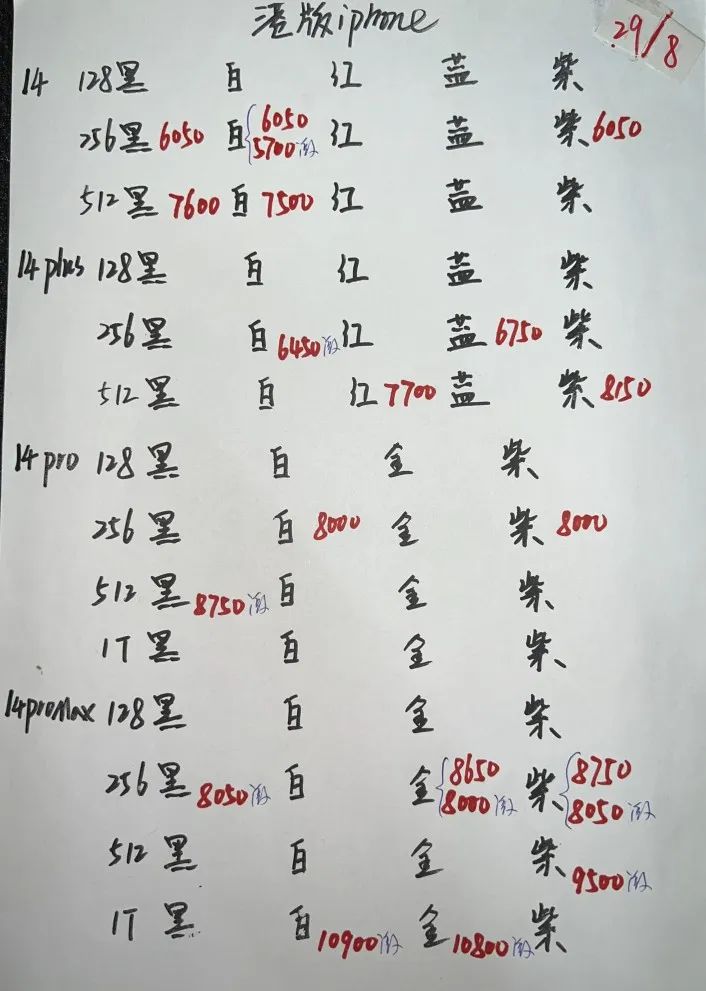 港版iphone
29/8
14 128黑 白 红 蓝 紫
256黑 6050 白 {6050 5700激 红 蓝 紫 6050
512黑 7600 白 7500 红 蓝 紫
14plus 128黑 白 红 蓝 紫
256黑 白 6450激 红 蓝 6750 紫
512黑 白 红 7700 蓝 紫 8150
14pro 128黑 白 金 紫
256黑 白 8000 金 紫 8000
512黑 8750激 白 金 紫
1T黑 白 金 紫
14proMax 128黑 白 金 紫
256黑 8050激 白 金 {8650 8000激 紫 {8750 8050激
512黑 白 金 紫 9500激
1T黑 白 10900激 金 10800激 紫